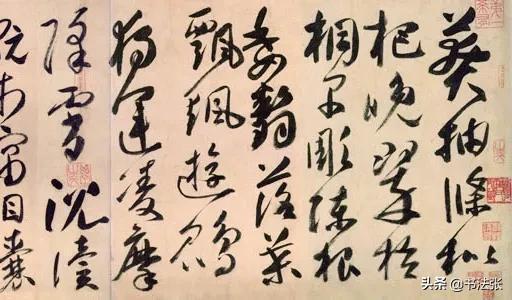 莽抽條枇
杷晚翠梧
桐早彫陳根
委翳落葉
飄颻遊鵾
獨運凌摩
絳霄耽讀
翫市寓目囊
头条 @书法张